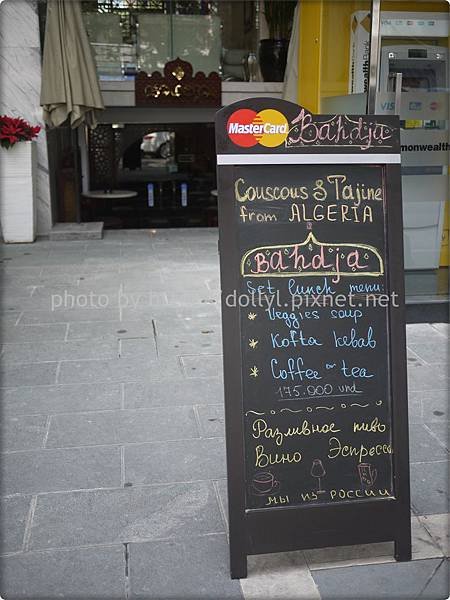 MasterCard Bahdja
VISA
wealth
monwealth
Couscous & Tajine
from ALGERIA
BAHDJA
Set lunch menu:
* Veggies soup
* Kofta kebab
* Coffee or tea
175.000 vnd
Разливное пиво
Вино Эспрессо
МЫ ИЗ РОССИИ
photo by dollyl.pixnet.net